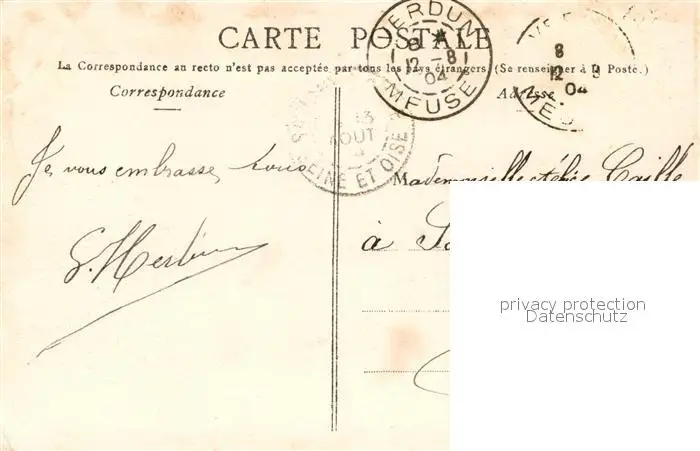 CARTE POSTALE
La Correspondance au recto n'est pas acceptée par tous les pays étrangers (Se renseigner à la Poste.)
Correspondance
Adresse
VERDUN
8 *
12 - 8
04
MEUSE
8
12 8
04
MEU
13
AOUT
SEINE ET OISE
Je vous embrasse tous
Mademoiselle
à
privacy protection
Datenschutz